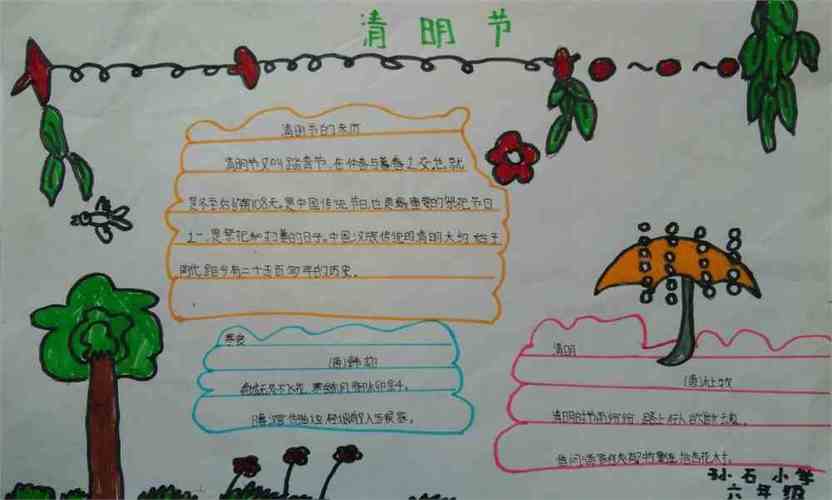 清明节
清明节的来历
清明节又叫踏青节,在仲春与暮春之交,也就
是冬至后的第108天。是中国传统节日,也是最重要的祭祀节日
之一,是祭祀和扫墓的日子。中国汉族传统的清明大约始于
周代,距今有二千五百多年的历史。
寒食
(唐)韩翃
春城无处不飞花,寒食东风御柳斜。
日暮汉宫传蜡烛,轻烟散入五侯家。
清明
(唐)杜牧
清明时节雨纷纷,路上行人欲断魂。
借问酒家何处有?牧童遥指杏花村。
孙石小学
六年级